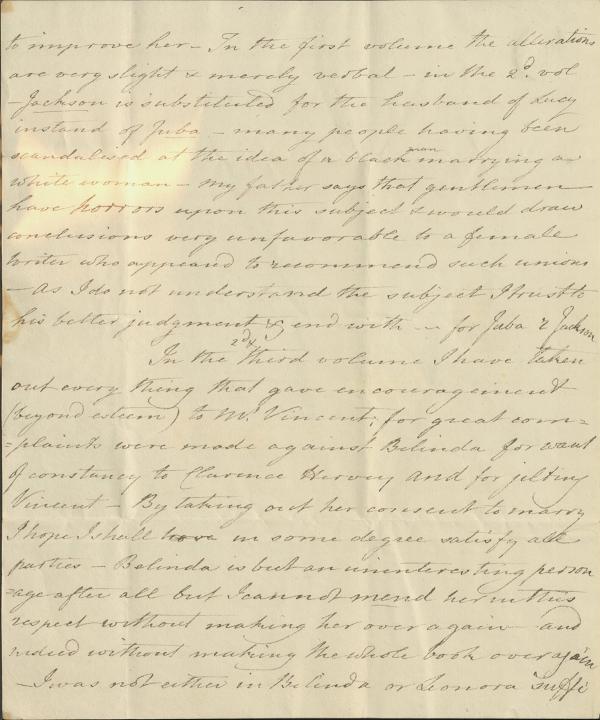 to improve her – In the first volume the alterations
are very slight & merely verbal – in the 2d. vol
– Jackson is substituted for the husband of Lucy
instead of Juba – many people having been
scandalised at the idea of a black man marrying a
white woman – My father says that gentlemen
have horrors upon this subject & would draw
conclusions very unfavorable to a female
writer who appeared to recommend such unions
– As I do not understand the subject I trust to
his better judgment & end with – for Juba r Jackson
In the 2d & third volume I have taken
out every thing that gave encouragement
(beyond esteem) to Mr. Vincent; for great com=
=plaints were made against Belinda for want
of constancy to Clarence Hervey and for jilting
Vincent – By taking out her consent to marry
I hope I shall have in some degree satisfy all
parties – Belinda is but an uninteresting person
=age after all but I cannot mend her in this
respect without making her over again – and
indeed without making the whole book over again
– I was not either in Belinda or Leonora suffi